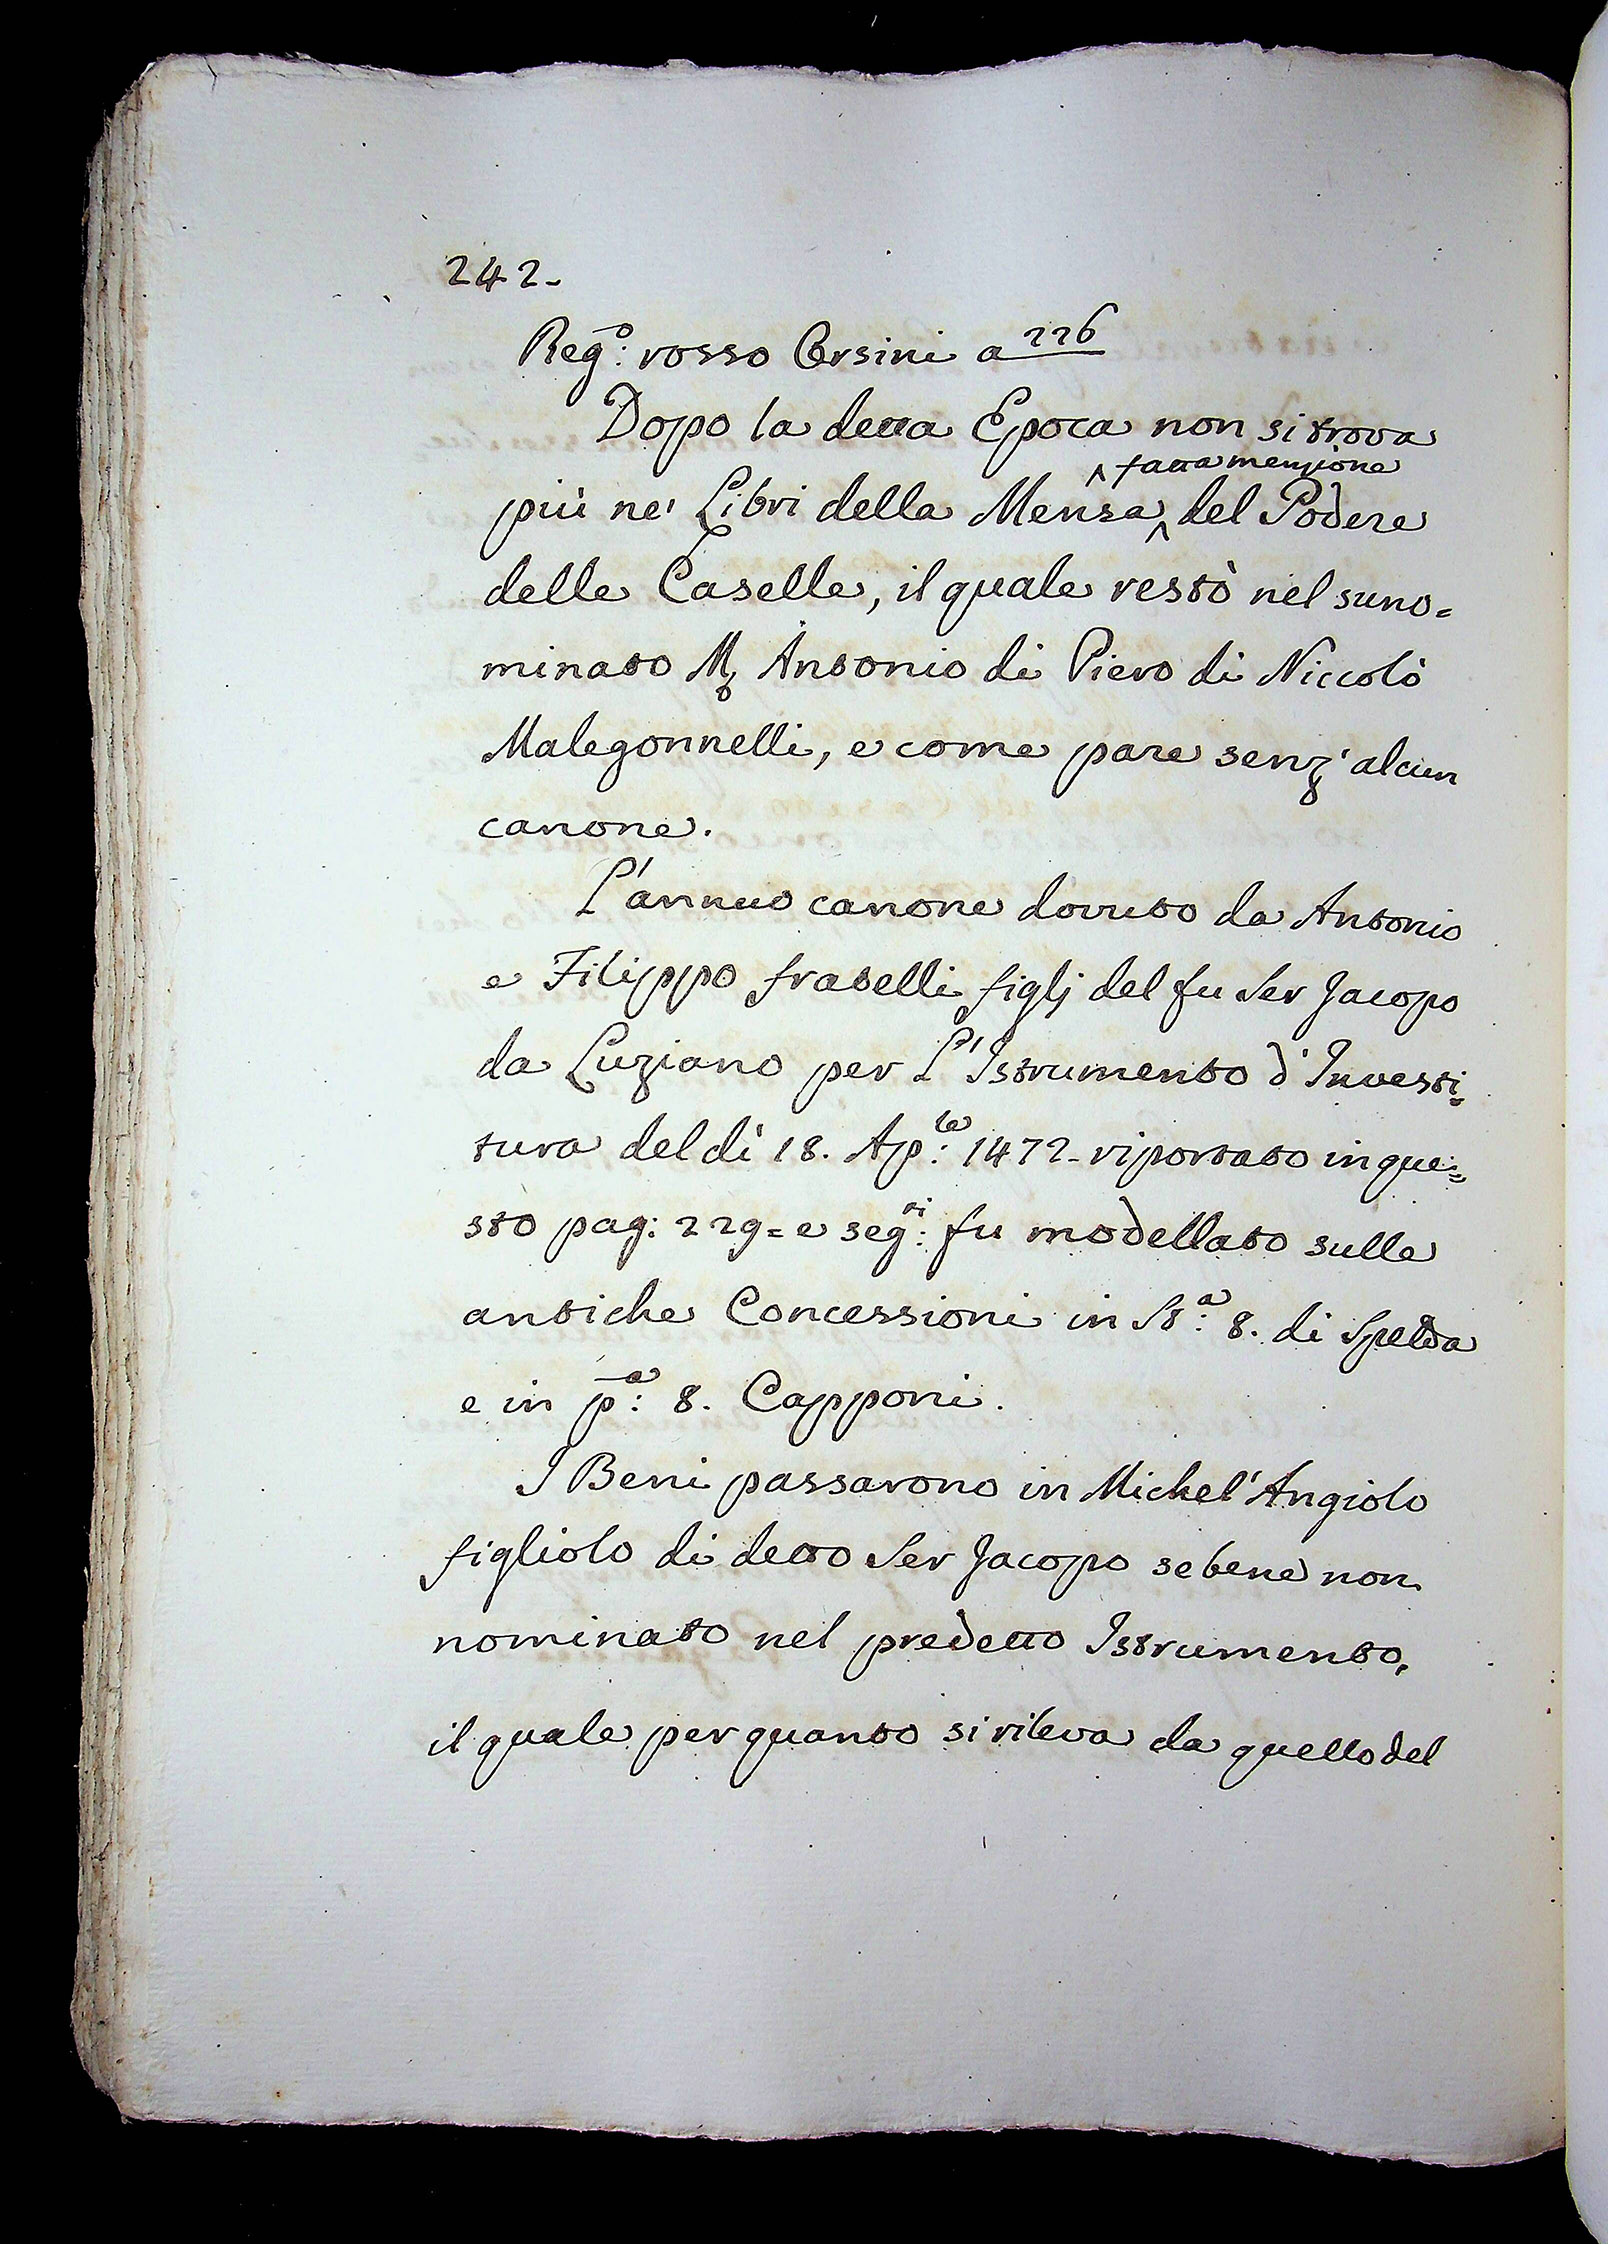 242-
Reg:o rosso Orsini a 226
Dopo la detta Epoca non si trova
^ fatta menzione
più ne' Libri della Mensa ^ del Podere
delle Caselle, il quale restò nel suno=
minato M. Antonio di Piero di Niccolò
Malegonnelli, e come pare senz' alcun
canone.
L'annuo canone dovuto da Antonio
e Filippo fratelli figlj del fu Ser Jacopo
da Luziano per L'Istrumento d'Investi=
tura del dì 18. Ap:le 1472- riportato in que=
sto pag: 229= e seg:ti fu modellato sulle
antiche Concessioni in St:a 8. di Spelda
e in p:a 8. Capponi.
I Beni passarono in Michel'Angiolo
figliolo di detto Ser Jacopo sebene non
nominato nel predetto Istrumento,
il quale per quanto si rileva da quello del